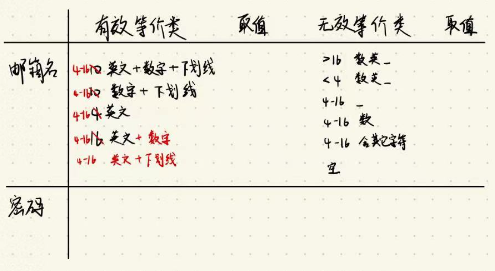 有效等价类 取值 无效等价类 取值
邮箱名
4-16 英文+数字+下划线
4-16 数字+下划线
4-16 英文
4-16 英文+数字
4-16 英文+下划线
>16 数英_
<4 数英_
4-16 _
4-16 数
4-16 含其它字符
空
密码